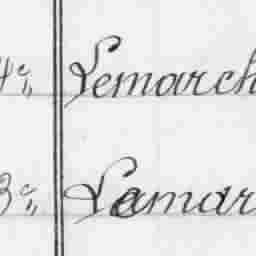 4e " Lemarch
3e " Lamar